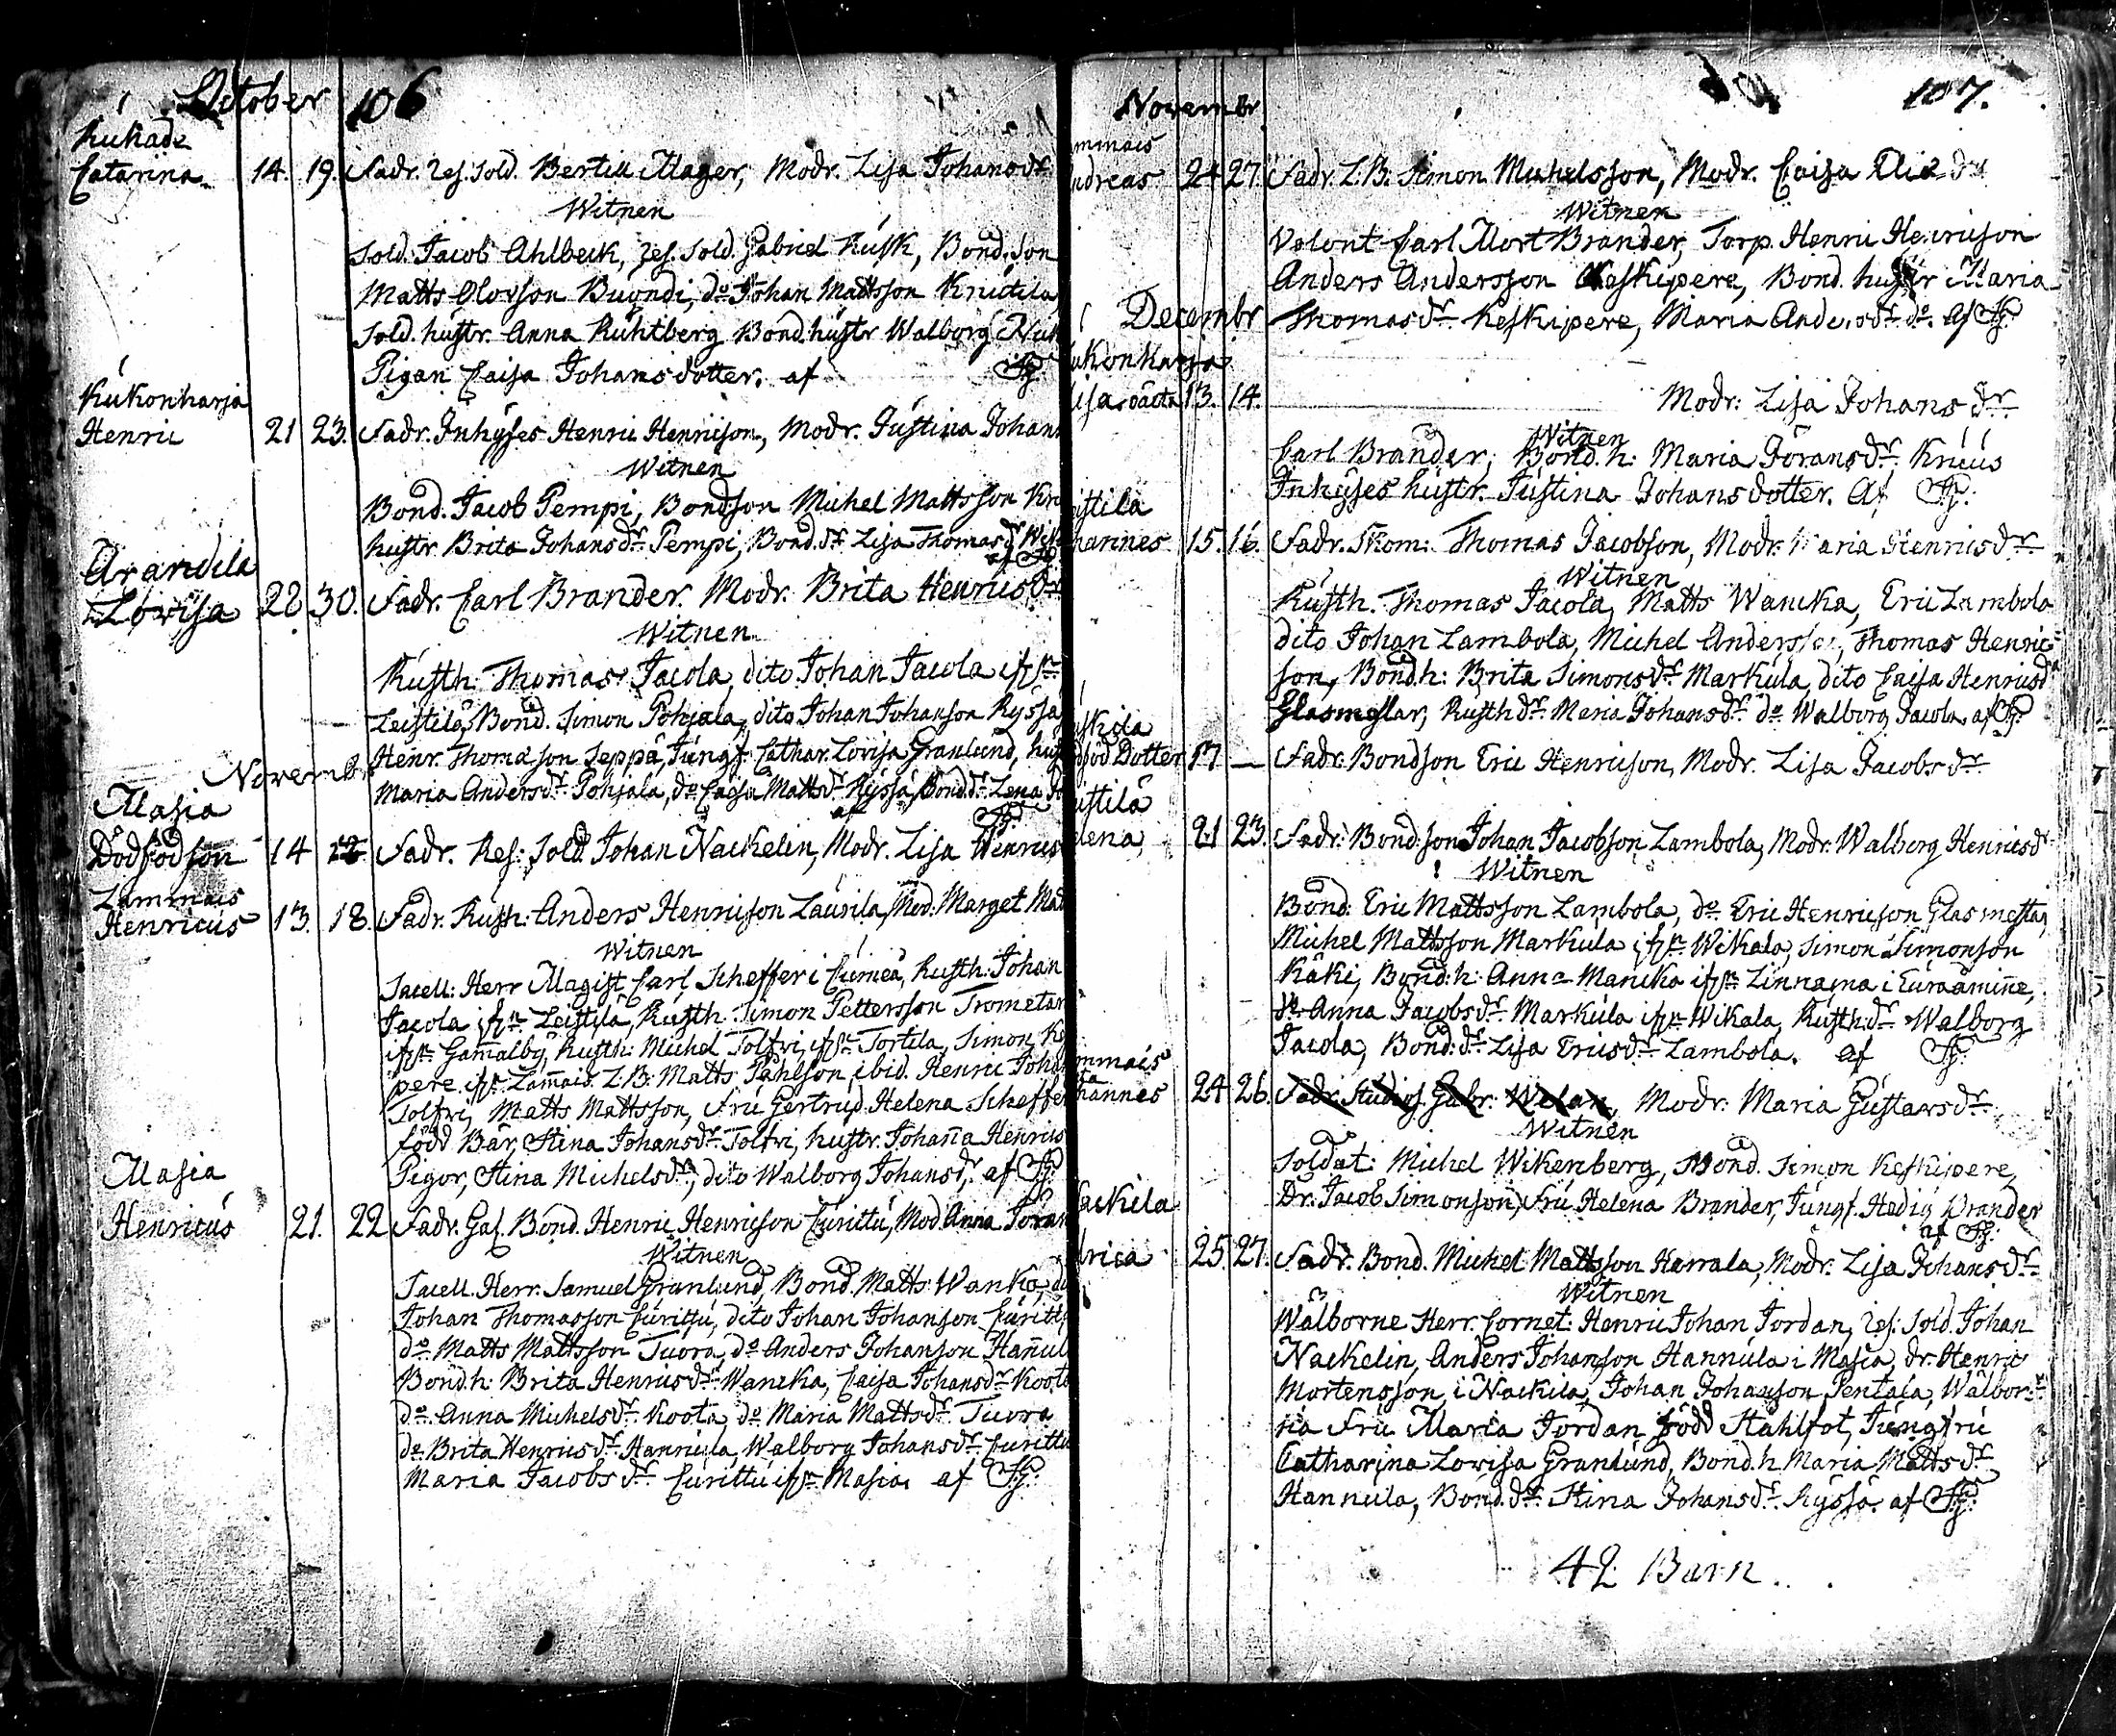 October 106
Kukade
Catarina 14. 19. Fadr. Res. Sold. Bertill Mager, Modr. Lisa Johansdr
Witnen
Sold. Jacob Ahlbeck, res. Sold. Gabriel Rusk, Bond. Son
Matts Olovson Buondi, do Johan Mattsson Knutila
Sold. hustr. Anna Ruhtberg Bond. hustr Walborg
Pigan Caisa Johansdotter. af
Kukonharja
Henric 21 23. Fadr. Inhyses Henric Henricson, Modr. Justina Johan
Witnen
Bond. Jacob Pempi, Bondson Michel Mattsson
hustr Brita Johansdr Pempi, Bond. dr Lisa Thomasdr
Arandila
Lovisa 22 30. Fadr. Carl Brander. Modr. Brita Henricsdr
Witnen
Rusth. Thomas Jacola, dito Johan Jacola ifrn
Leistilä, Bond. Simon Pohjala, dito Johan Johanson Kyssä
Henr. Thomason Seppä, Jungf. Cathar. Lovisa Granlund,
Maria Andersdr Pohjala, do Caisa Mattsdr Kyssä, Bond. dr Lena
af
Novemb
Masia
Dödfödson 14 Fadr. Res: Sold Johan Nackelin, Modr. Lisa Henrics
Lammais
Henricus 13. 18. Fadr. Rusth: Anders Henricson Lausila, Mod: Marget
Witnen
Sacell: Herr Magist Carl Scheffer i Cumeå, Rusth: Johan
Jacola ifrn Leistilä, Rusth. Simon Pettersson Trometar
ifrn Gamalby, Rusth: Michel Tolfri, ifrn Tortila, Simon
pere ifrn Lamais. L.B: Matts Påhlson, ibid. Henric Joha
Tolfri, Matts Mattsson, Fru Gertrud Helena Scheffer
född Bär, Stina Johansdr Tolfri, hustr. Johana Henrics
Pigor, Stina Michelsdr, dito Walborg Johansdr, af
Masia
Henricus 21. 22 Fadr. Bond. Henric Henricson Curittu, Mod. Anna Joran
Witnen
Sacell. Herr. Samuel Granlund, Bond. Matts Wanka,
Johan Thomasson Curittu, dito Johan Johanson Curittu
do Matts Mattsson Tuora, do Anders Johanson Hanul
Bond. h. Brita Henricsdr Wancka, Caisa Johansdr Koota
do Anna Michelsdr Koota, do Maria Mattsdr Tuora
do Brita Henricsdr Hannula, Walborg Johansdr Curittu
Maria Jacobsdr Curittu ifrn Masia. af
Novembr 107.
mmais
ndreas 24 27. Fadr. L.B. Simon Michelsson, Modr. Caisa
Witnen
Volont Carl Mort Brander, Torp. Henric Henricson
Anders Andersson Keskipere, Bond. hustr Maria
Thomasdr Keskipere, Maria Andersdr do. af
Decembr
ukonharja
isa oäcta 13. 14. Modr: Lisa Johansdr
Witnen
Carl Brander, Bond. h: Maria Joransdr
Inhyses hustr. Justina Johansdotter. Af
istila
hannes 15. 16. Fadr. Skom: Thomas Jacobson, Modr. Maria Henricsdr
Witnen
Rusth. Thomas Jacola, Matts Wancka, Eric Lambola
dito Johan Lambola, Michel Andersson, Thomas Henric
son, Bond. h: Brita Simonsdr Markula, dito Caisa Henricsd
Glasmestar, Rusth dr Maria Johansdr do Walborg Jacola af
dföd Dotter 17 — Fadr. Bondson Eric Henricson, Modr. Lisa Jacobsdr
istilä
elena, 21 23. Fadr. Bondson Johan Jacobson Lambola, Modr. Walborg Henricsdr
Witnen
Bond: Eric Mattsson Lambola, do Eric Henricson Glasmestar,
Michel Mattsson Markula ifrn Wikala, Simon Simonson
Käki, Bond: h: Anna Mancka ifrn Linnama i Euraåminne,
do Anna Jacobsdr Markula ifrn Wikala, Rusth: dr Walborg
Jacola, Bond: dr Lisa Ericsdr Lambola. af
ammais
hannes 24 26. Fadr. Studios. Gabr. Welan, Modr: Maria Gustavsdr
Witnen
Soldat: Michel Wikenberg, Bond. Simon Keskipere,
Dr. Jacob Simonson, Fru Helena Brander, Jungf. Hedvig Brander
af
ackila
drica 25. 27. Fadr. Bond. Michel Mattsson Harrala, Modr. Lisa Johansdr
Witnen
Wälborne Herr. Cornet: Henric Johan Jordan, res: Sold. Johan
Nackelin, Anders Johanson Hannula i Masia, dr. Henric
Mortensson, i Nackila, Johan Johanson Pentala, Wälbor:
na Fru Maria Jordan född Stahlfot, Jungfru
Catharina Lovisa Granlund, Bond. h Maria Mattsdr
Hannula, Bond. dr Stina Johansdr Kyssä. af
42 Barn.